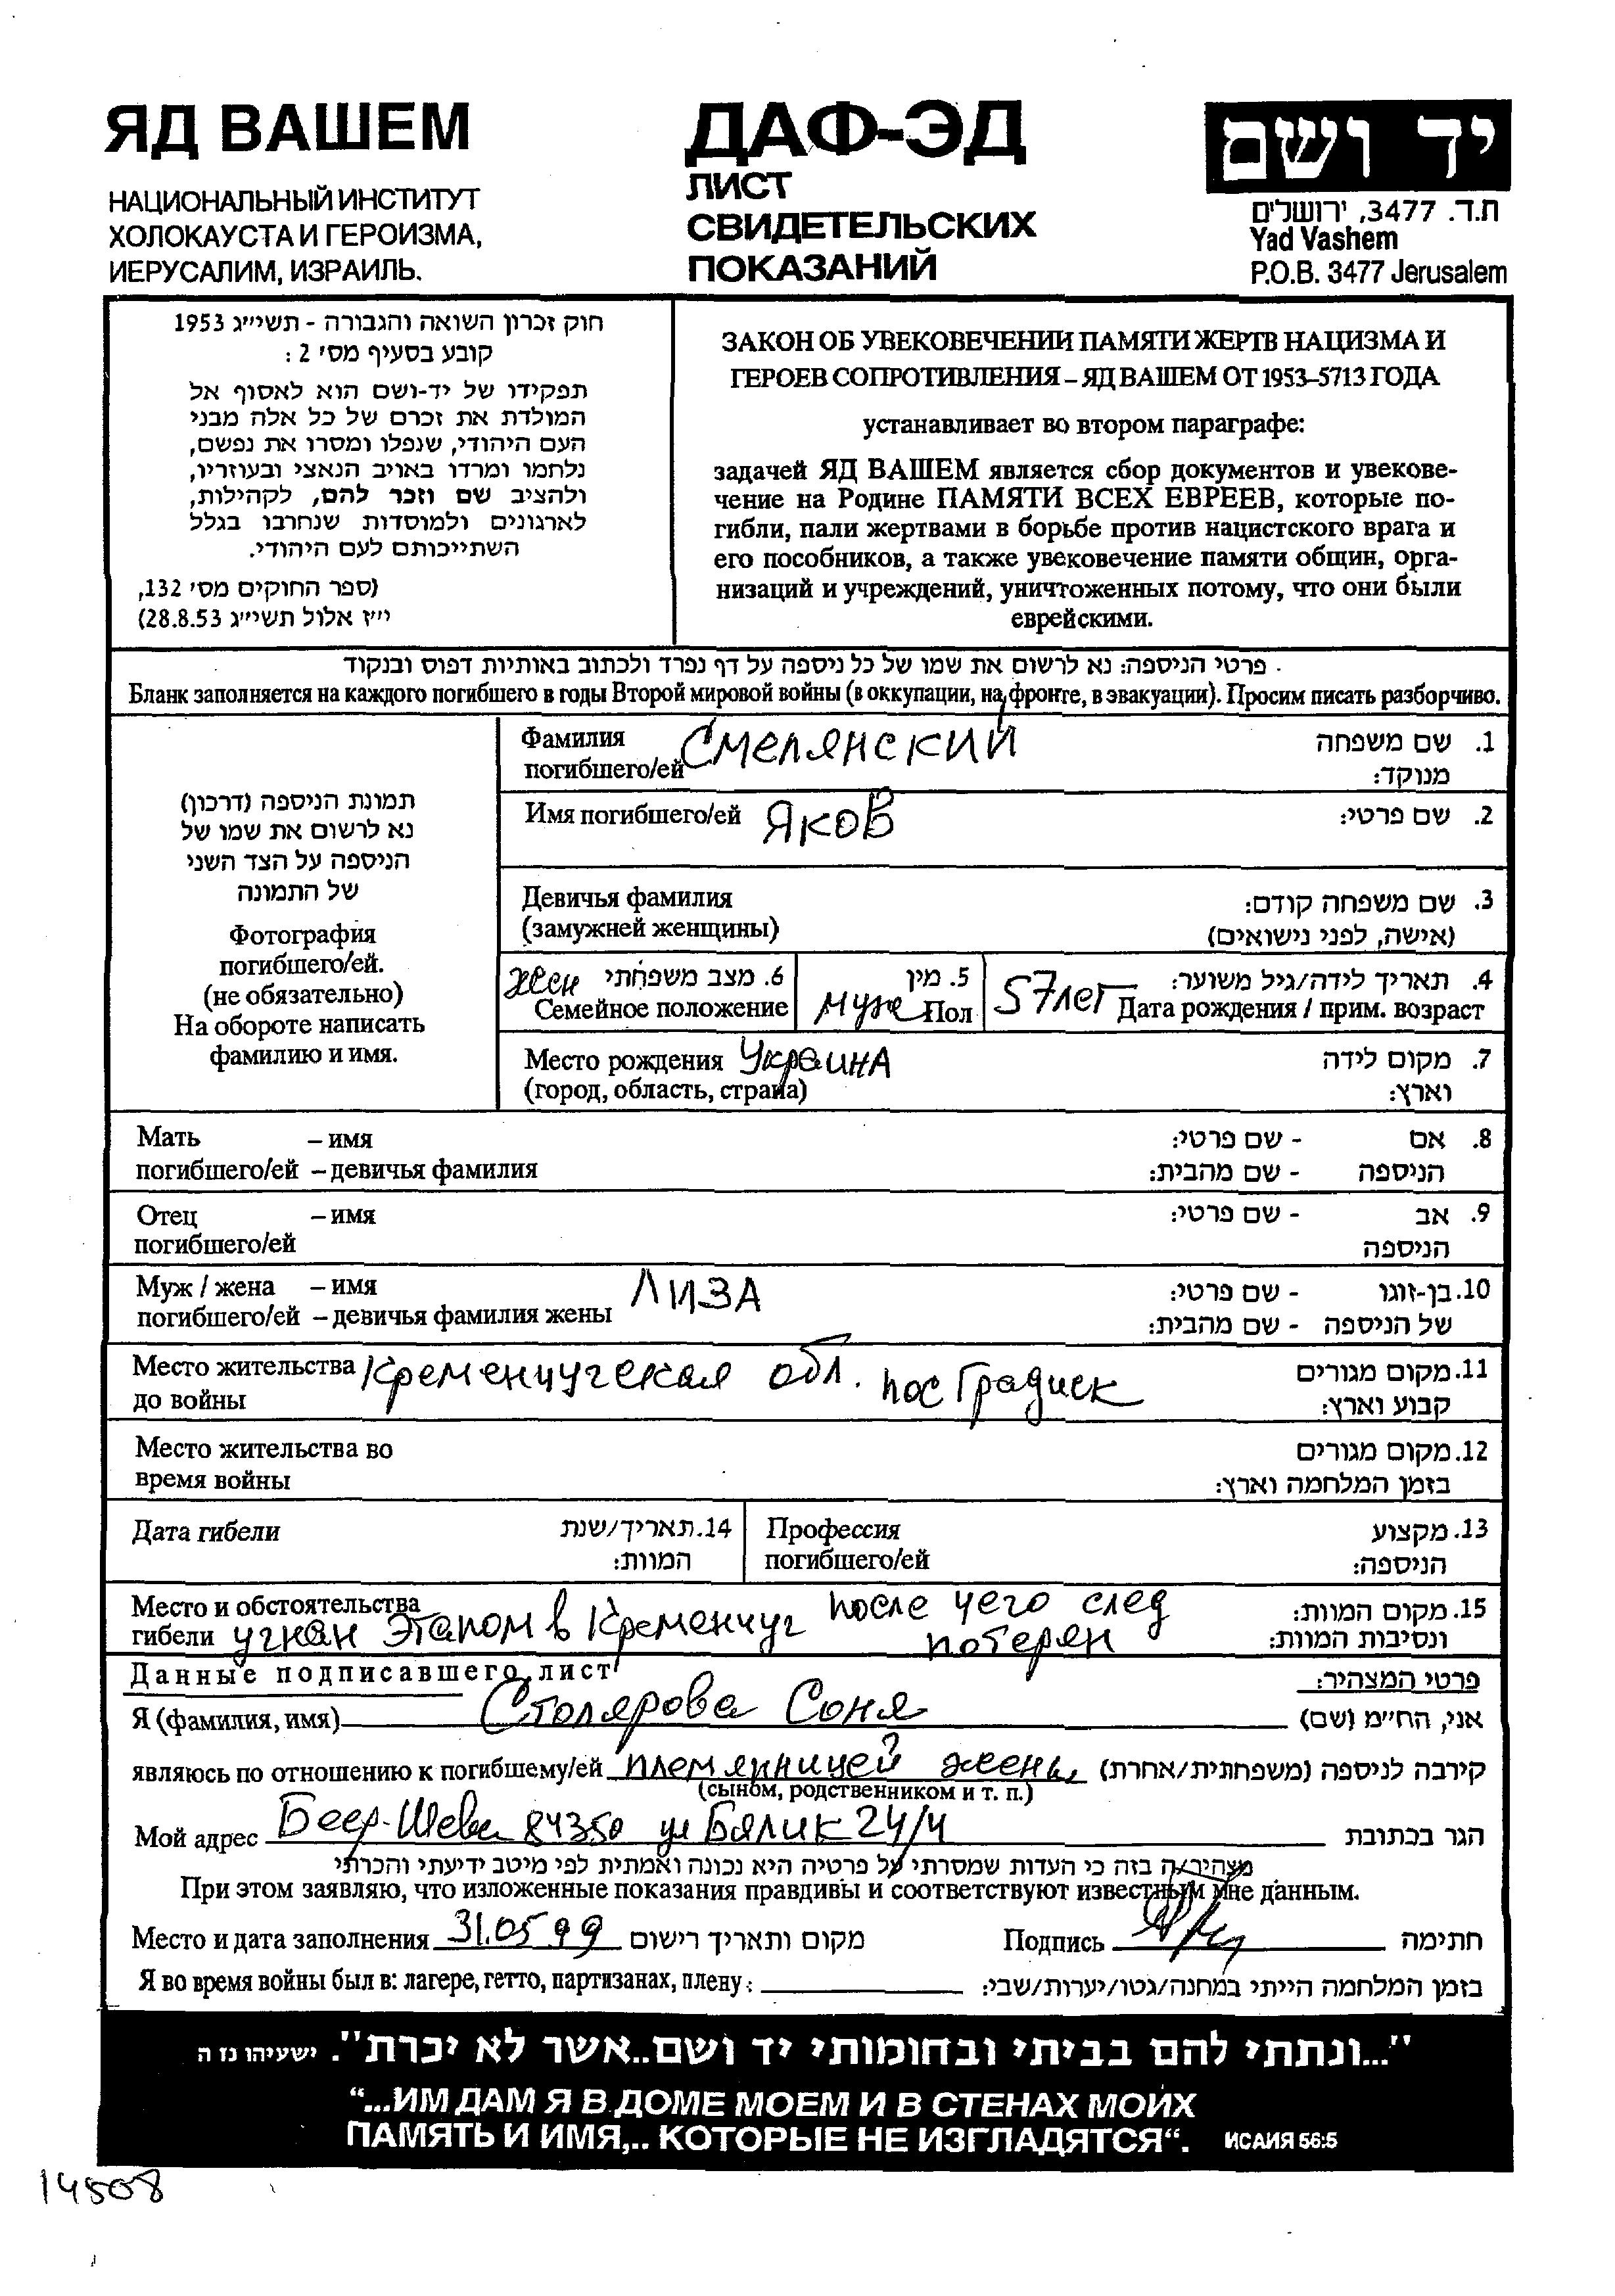 ЯД ВАШЕМ
НАЦИОНАЛЬНЫЙ ИНСТИТУТ
ХОЛОКАУСТА И ГЕРОИЗМА,
ИЕРУСАЛИМ, ИЗРАИЛЬ.
ДАФ-ЭД
ЛИСТ
СВИДЕТЕЛЬСКИХ
ПОКАЗАНИЙ
יד ושם
ת.ד. 3477, ירושלים
Yad Vashem
P.O.B. 3477 Jerusalem
חוק זכרון השואה והגבורה - תשי״ג 1953
קובע בסעיף מס׳ 2 :
תפקידו של יד-ושם הוא לאסוף אל
המולדת את זכרם של כל אלה מבני
העם היהודי, שנפלו ומסרו את נפשם,
נלחמו ומרדו באויב הנאצי ובעוזריו,
ולהציב שם וזכר להם, לקהילות,
לארגונים ולמוסדות שנחרבו בגלל
השתייכותם לעם היהודי.
(ספר החוקים מס׳ 132,
י״ז אלול תשי״ג 28.8.53)
ЗАКОН ОБ УВЕКОВЕЧЕНИИ ПАМЯТИ ЖЕРТВ НАЦИЗМА И
ГЕРОЕВ СОПРОТИВЛЕНИЯ – ЯД ВАШЕМ ОТ 1953–5713 ГОДА
устанавливает во втором параграфе:
задачей ЯД ВАШЕМ является сбор документов и увекове-
чение на Родине ПАМЯТИ ВСЕХ ЕВРЕЕВ, которые по-
гибли, пали жертвами в борьбе против нацистского врага и
его пособников, а также увековечение памяти общин, орга-
низаций и учреждений, уничтоженных потому, что они были
еврейскими.
פרטי הניספה: נא לרשום את שמו של כל ניספה על דף נפרד ולכתוב באותיות דפוס ובנקוד
Бланк заполняется на каждого погибшего в годы Второй мировой войны (в оккупации, на фронте, в эвакуации). Просим писать разборчиво.
תמונת הניספה (דרכון)
נא לרשום את שמו של
הניספה על הצד השני
של התמונה
Фотография
погибшего/ей.
(не обязательно)
На обороте написать
фамилию и имя.
Фамилия СМЕЛЯНСКИЙ 1. שם משפחה
погибшего/ей מנוקד:
Имя погибшего/ей ЯКОВ 2. שם פרטי:
Девичья фамилия 3. שם משפחה קודם:
(замужней женщины) (אישה, לפני נישואים)
жен 6. מצב משפחתי
Семейное положение
5. מין
муж Пол
4. תאריך לידה/גיל משוער:
57лет Дата рождения / прим. возраст
Место рождения Украина 7. מקום לידה
(город, область, страна) וארץ:
Мать – имя 8. אם - שם פרטי:
погибшего/ей – девичья фамилия הניספה - שם מהבית:
Отец – имя 9. אב - שם פרטי:
погибшего/ей הניספה
Муж / жена – имя ЛИЗА 10. בן-זוגו - שם פרטי:
погибшего/ей – девичья фамилия жены של הניספה - שם מהבית:
Место жительства Кременчугская обл. пос Градиск 11. מקום מגורים
до войны קבוע וארץ:
Место жительства во 12. מקום מגורים
время войны בזמן המלחמה וארץ:
Дата гибели 14. תאריך/שנת
המוות:
Профессия 13. מקצוע
погибшего/ей הניספה:
Место и обстоятельства после чего след 15. מקום המוות:
гибели угнан этапом в Кременчуг потерян ונסיבות המוות:
Данные подписавшего лист פרטי המצהיר:
Я (фамилия, имя) Столярова Соня אני, הח״מ (שם)
являюсь по отношению к погибшему/ей племянницей жены קירבה לניספה (משפחתית/אחרת)
(сыном, родственником и т. п.)
Мой адрес Беер-Шева 84350 ул Бялик 24/4 הגר בכתובת
מצהיר/ה בזה כי העדות שמסרתי על פרטיה היא נכונה ואמתית לפי מיטב ידיעתי והכרתי
При этом заявляю, что изложенные показания правдивы и соответствуют известным мне данным.
Место и дата заполнения 31.05 99 מקום ותאריך רישום Подпись חתימה
Я во время войны был в: лагере, гетто, партизанах, плену: בזמן המלחמה הייתי במחנה/גטו/יערות/שבי:
"...ונתתי להם בביתי ובחומותי יד ושם..אשר לא יכרת". ישעיהו נז ה
“...ИМ ДАМ Я В ДОМЕ МОЕМ И В СТЕНАХ МОИХ
ПАМЯТЬ И ИМЯ,.. КОТОРЫЕ НЕ ИЗГЛАДЯТСЯ“. ИСАИЯ 56:5
14508